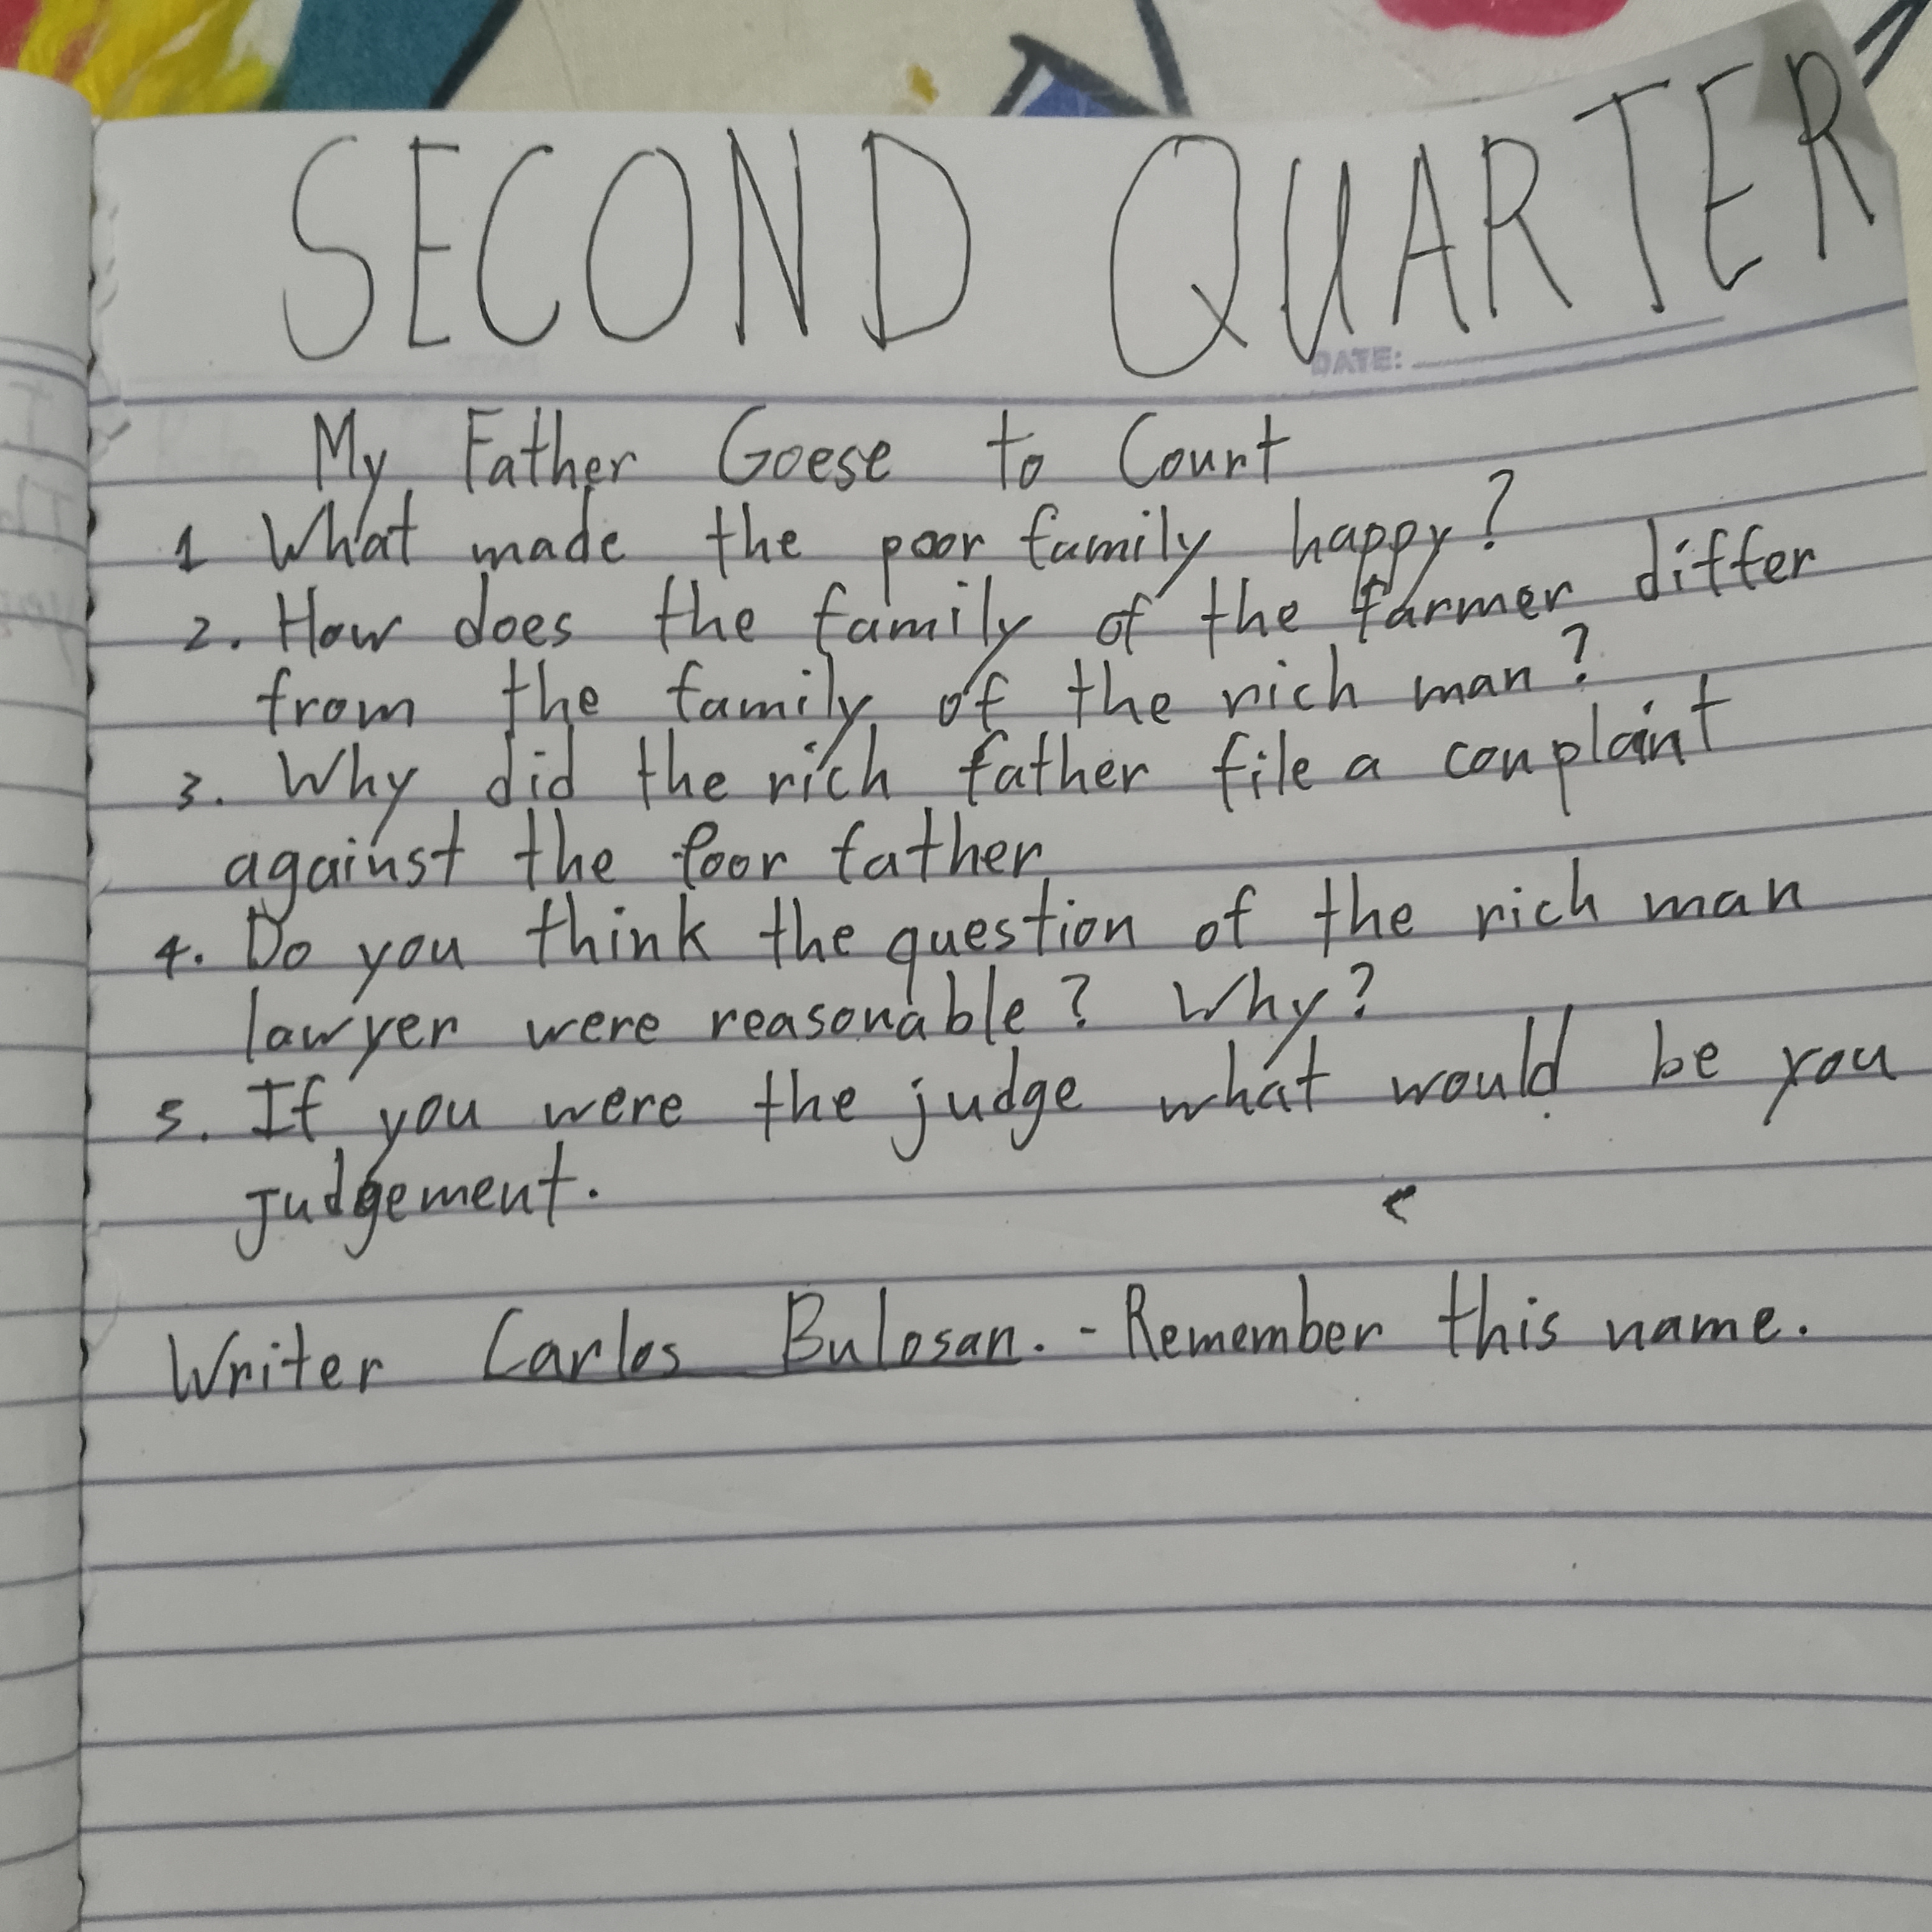 SECOND QUARTER
DATE:
My Father Goese to Court
1 What made the poor family happy?
2. How does the family of the farmer differ
from the family of the rich man?
3. Why did the rich father file a conplaint
against the Poor father
4. Do you think the question of the rich man
lawyer were reasonable? Why?
5. If you were the judge what would be you
Judgement.
Writer Carlos Bulosan. - Remember this name.